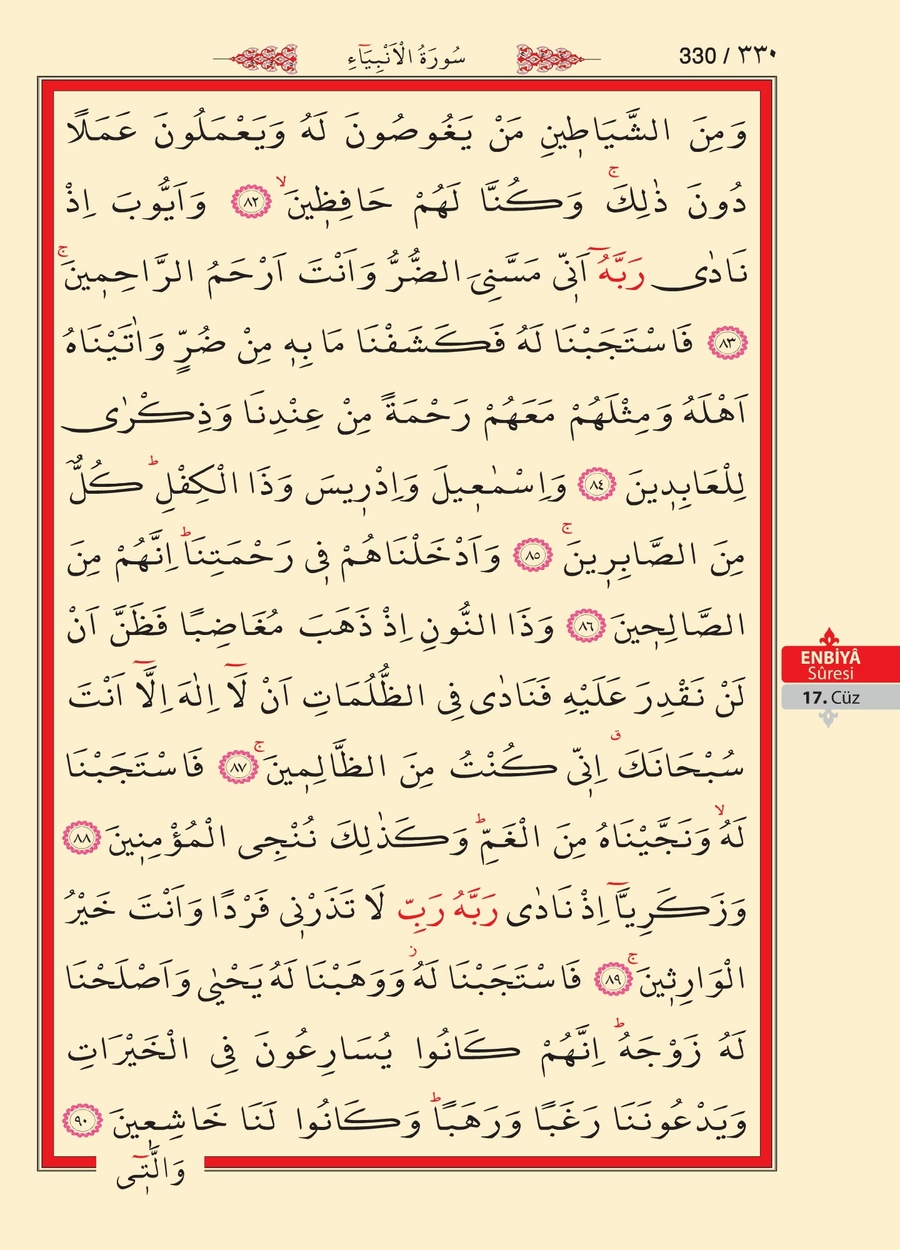 330 / ٣٣٠
سُورَةُ الْاَنْبِيَٓاءِ
وَمِنَ الشَّيَاط۪ينِ مَنْ يَغُوصُونَ لَهُ وَيَعْمَلُونَ عَمَلًا
دُونَ ذٰلِكَۚ وَكُنَّا لَهُمْ حَافِظ۪ينَۙ ﴿٨٢﴾ وَاَيُّوبَ اِذْ
نَادٰى رَبَّهُٓ اَنّ۪ي مَسَّنِيَ الضُّرُّ وَاَنْتَ اَرْحَمُ الرَّاحِم۪ينَۚ
﴿٨٣﴾ فَاسْتَجَبْنَا لَهُ فَكَشَفْنَا مَا بِه۪ مِنْ ضُرٍّ وَاٰتَيْنَاهُ
اَهْلَهُ وَمِثْلَهُمْ مَعَهُمْ رَحْمَةً مِنْ عِنْدِنَا وَذِكْرٰى
لِلْعَابِد۪ينَ ﴿٨٤﴾ وَاِسْمٰع۪يلَ وَاِدْر۪يسَ وَذَا الْكِفْلِۜ كُلٌّ
مِنَ الصَّابِر۪ينَۚ ﴿٨٥﴾ وَاَدْخَلْنَاهُمْ ف۪ي رَحْمَتِنَاۜ اِنَّهُمْ مِنَ
الصَّالِح۪ينَ ﴿٨٦﴾ وَذَا النُّونِ اِذْ ذَهَبَ مُغَاضِبًا فَظَنَّ اَنْ
لَنْ نَقْدِرَ عَلَيْهِ فَنَادٰى فِي الظُّلُمَاتِ اَنْ لَٓا اِلٰهَ اِلَّٓا اَنْتَ
سُبْحَانَكَۗ اِنّ۪ي كُنْتُ مِنَ الظَّالِم۪ينَۚ ﴿٨٧﴾ فَاسْتَجَبْنَا
لَهُۙ وَنَجَّيْنَاهُ مِنَ الْغَمِّۜ وَكَذٰلِكَ نُنْجِي الْمُؤْمِن۪ينَ ﴿٨٨﴾
وَزَكَرِيَّٓا اِذْ نَادٰى رَبَّهُ رَبِّ لَا تَذَرْن۪ي فَرْدًا وَاَنْتَ خَيْرُ
الْوَارِث۪ينَۚ ﴿٨٩﴾ فَاسْتَجَبْنَا لَهُۘ وَوَهَبْنَا لَهُ يَحْيٰى وَاَصْلَحْنَا
لَهُ زَوْجَهُۜ اِنَّهُمْ كَانُوا يُسَارِعُونَ فِي الْخَيْرَاتِ
وَيَدْعُونَنَا رَغَبًا وَرَهَبًاۜ وَكَانُوا لَنَا خَاشِع۪ينَ ﴿٩٠﴾
وَالَّت۪ٓي
ENBİYÂ
Sûresi
17. Cüz